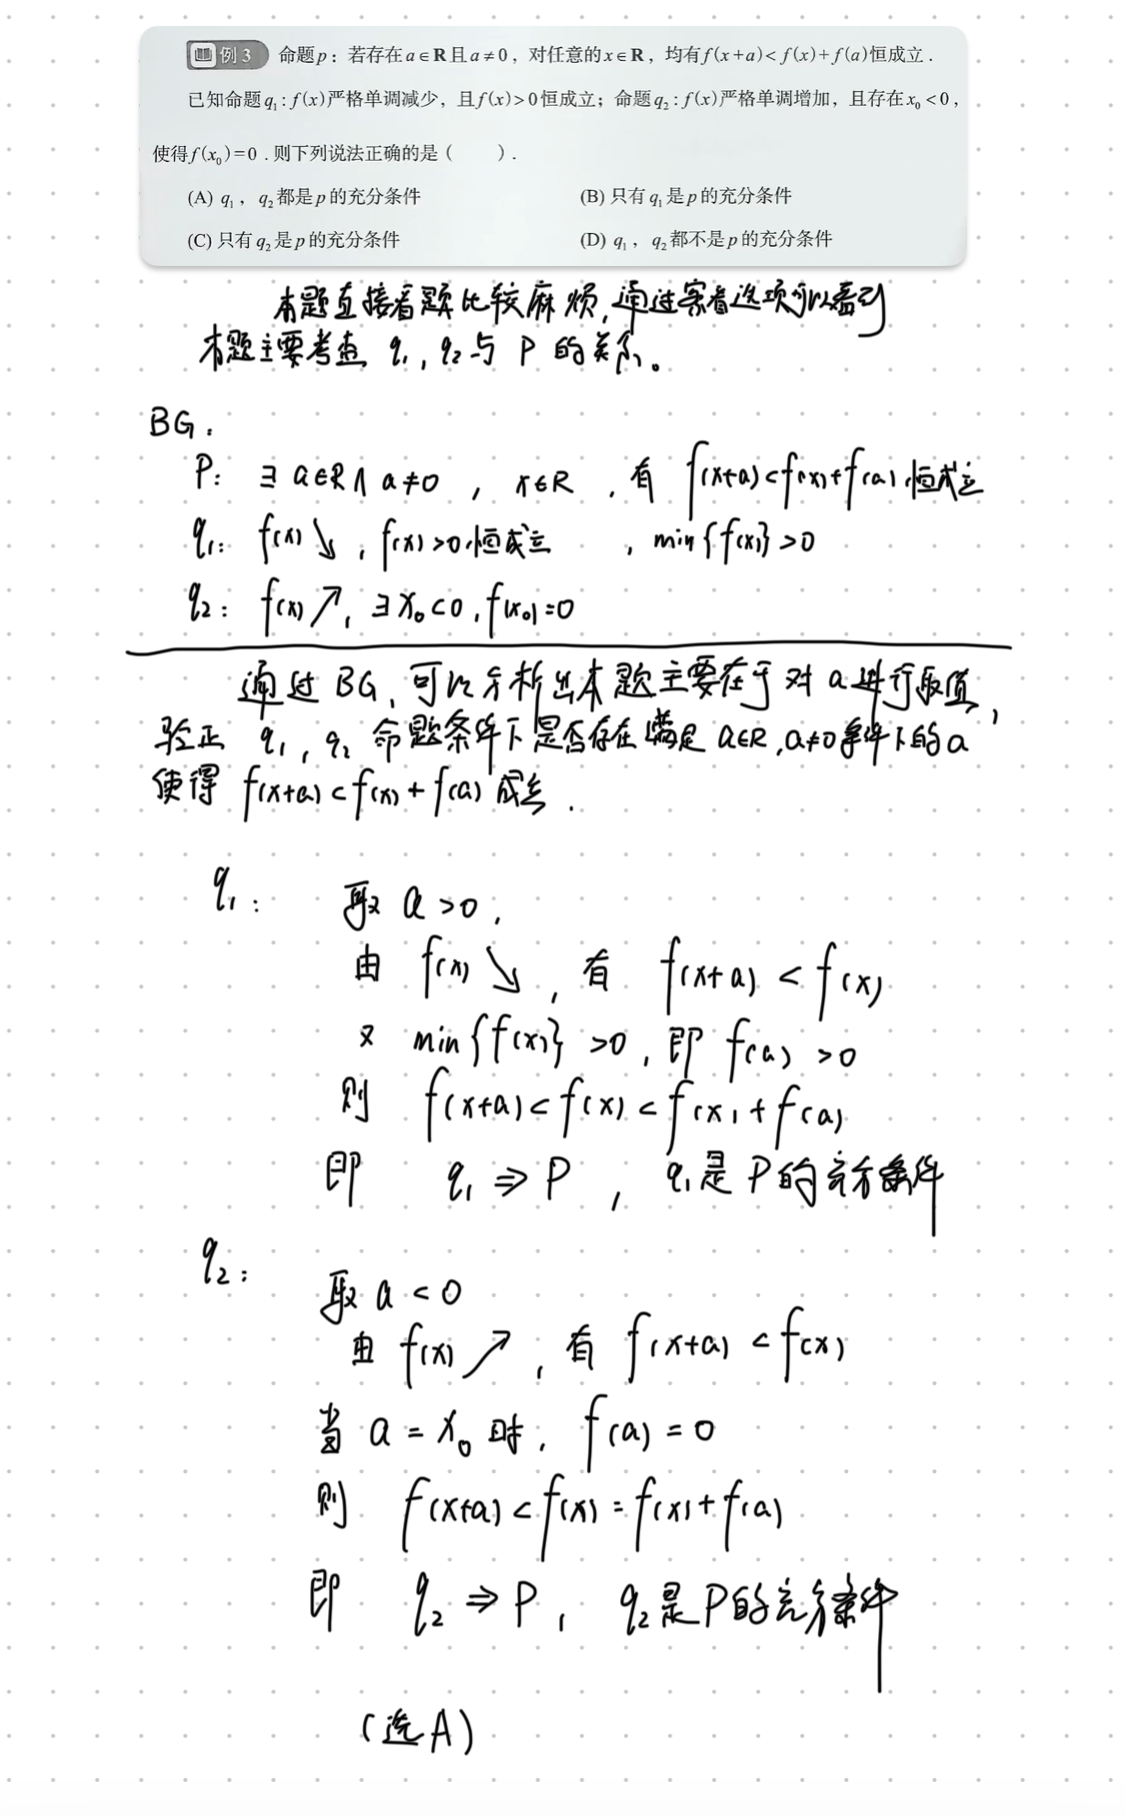 例3 命题p：若存在a∈R且a≠0，对任意的x∈R，均有f(x+a)<f(x)+f(a)恒成立．
已知命题q₁：f(x)严格单调减少，且f(x)>0恒成立；命题q₂：f(x)严格单调增加，且存在x₀<0，
使得f(x₀)=0．则下列说法正确的是（ ）．
(A) q₁，q₂都是p的充分条件 (B) 只有q₁是p的充分条件
(C) 只有q₂是p的充分条件 (D) q₁，q₂都不是p的充分条件
本题直接看题比较麻烦，通过察看选项可以看到
本题主要考查 q₁，q₂与 P 的关系。
BG：
P： ∃ a∈R∧ a≠0 ， x∈R ，有 f(x+a)<f(x)+f(a)恒成立
q₁： f(x)↘，f(x)>0恒成立 ，min{f(x)}>0
q₂： f(x)↗，∃x₀<0，f(x₀)=0
通过BG，可以分析出本题主要在于对a进行取值，
验证 q₁，q₂ 命题条件下是否存在满足 a∈R，a≠0条件下的a
使得 f(x+a)<f(x)+f(a)成立．
q₁： 取 a>0，
由 f(x)↘，有 f(x+a)<f(x)
又 min{f(x)}>0，即 f(a)>0
则 f(x+a)<f(x)<f(x)+f(a)
即 q₁⇒P ，q₁是P的充分条件
q₂： 取 a<0
由 f(x)↗，有 f(x+a)<f(x)
当 a=x₀ 时，f(a)=0
则 f(x+a)<f(x)=f(x)+f(a)
即 q₂⇒P， q₂是P的充分条件
（选A）